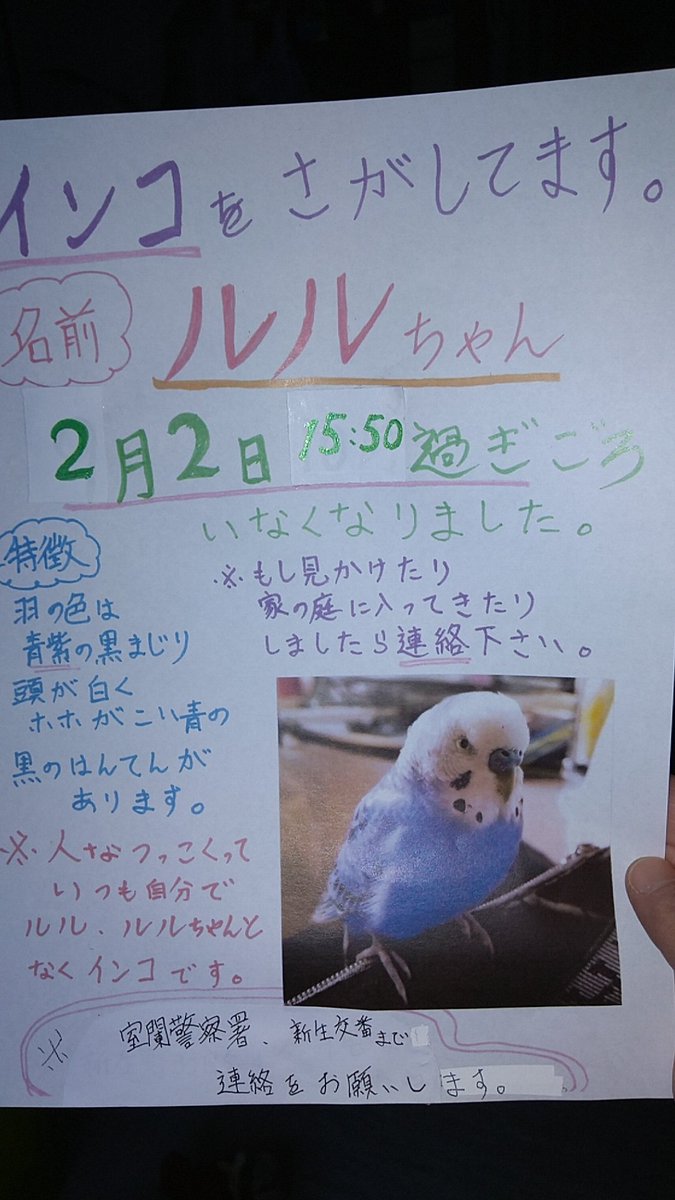 インコをさがしてます。
名前 ルルちゃん
2月2日 15:50過ぎごろ
いなくなりました。
特徴
羽の色は
青紫の黒まじり
頭が白く
ホホがこい青の
黒のはんてんが
あります。
※もし見かけたり
家の庭に入ってきたり
しましたら連絡下さい。
※人なつっこくって
いつも自分で
ルル、ルルちゃんと
なくインコです。
※室蘭警察署、新生交番まで
連絡をお願いします。